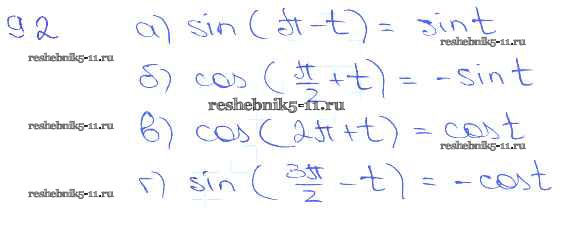 92 а) sin(π-t) = sint
reshebnik5-11.ru reshebnik5-11.ru
б) cos(π/2+t) = -sint
reshebnik5-11.ru
reshebnik5-11.ru в) cos(2π+t) = cost
reshebnik5-11.ru
г) sin(3π/2-t) = -cost
reshebnik5-11.ru